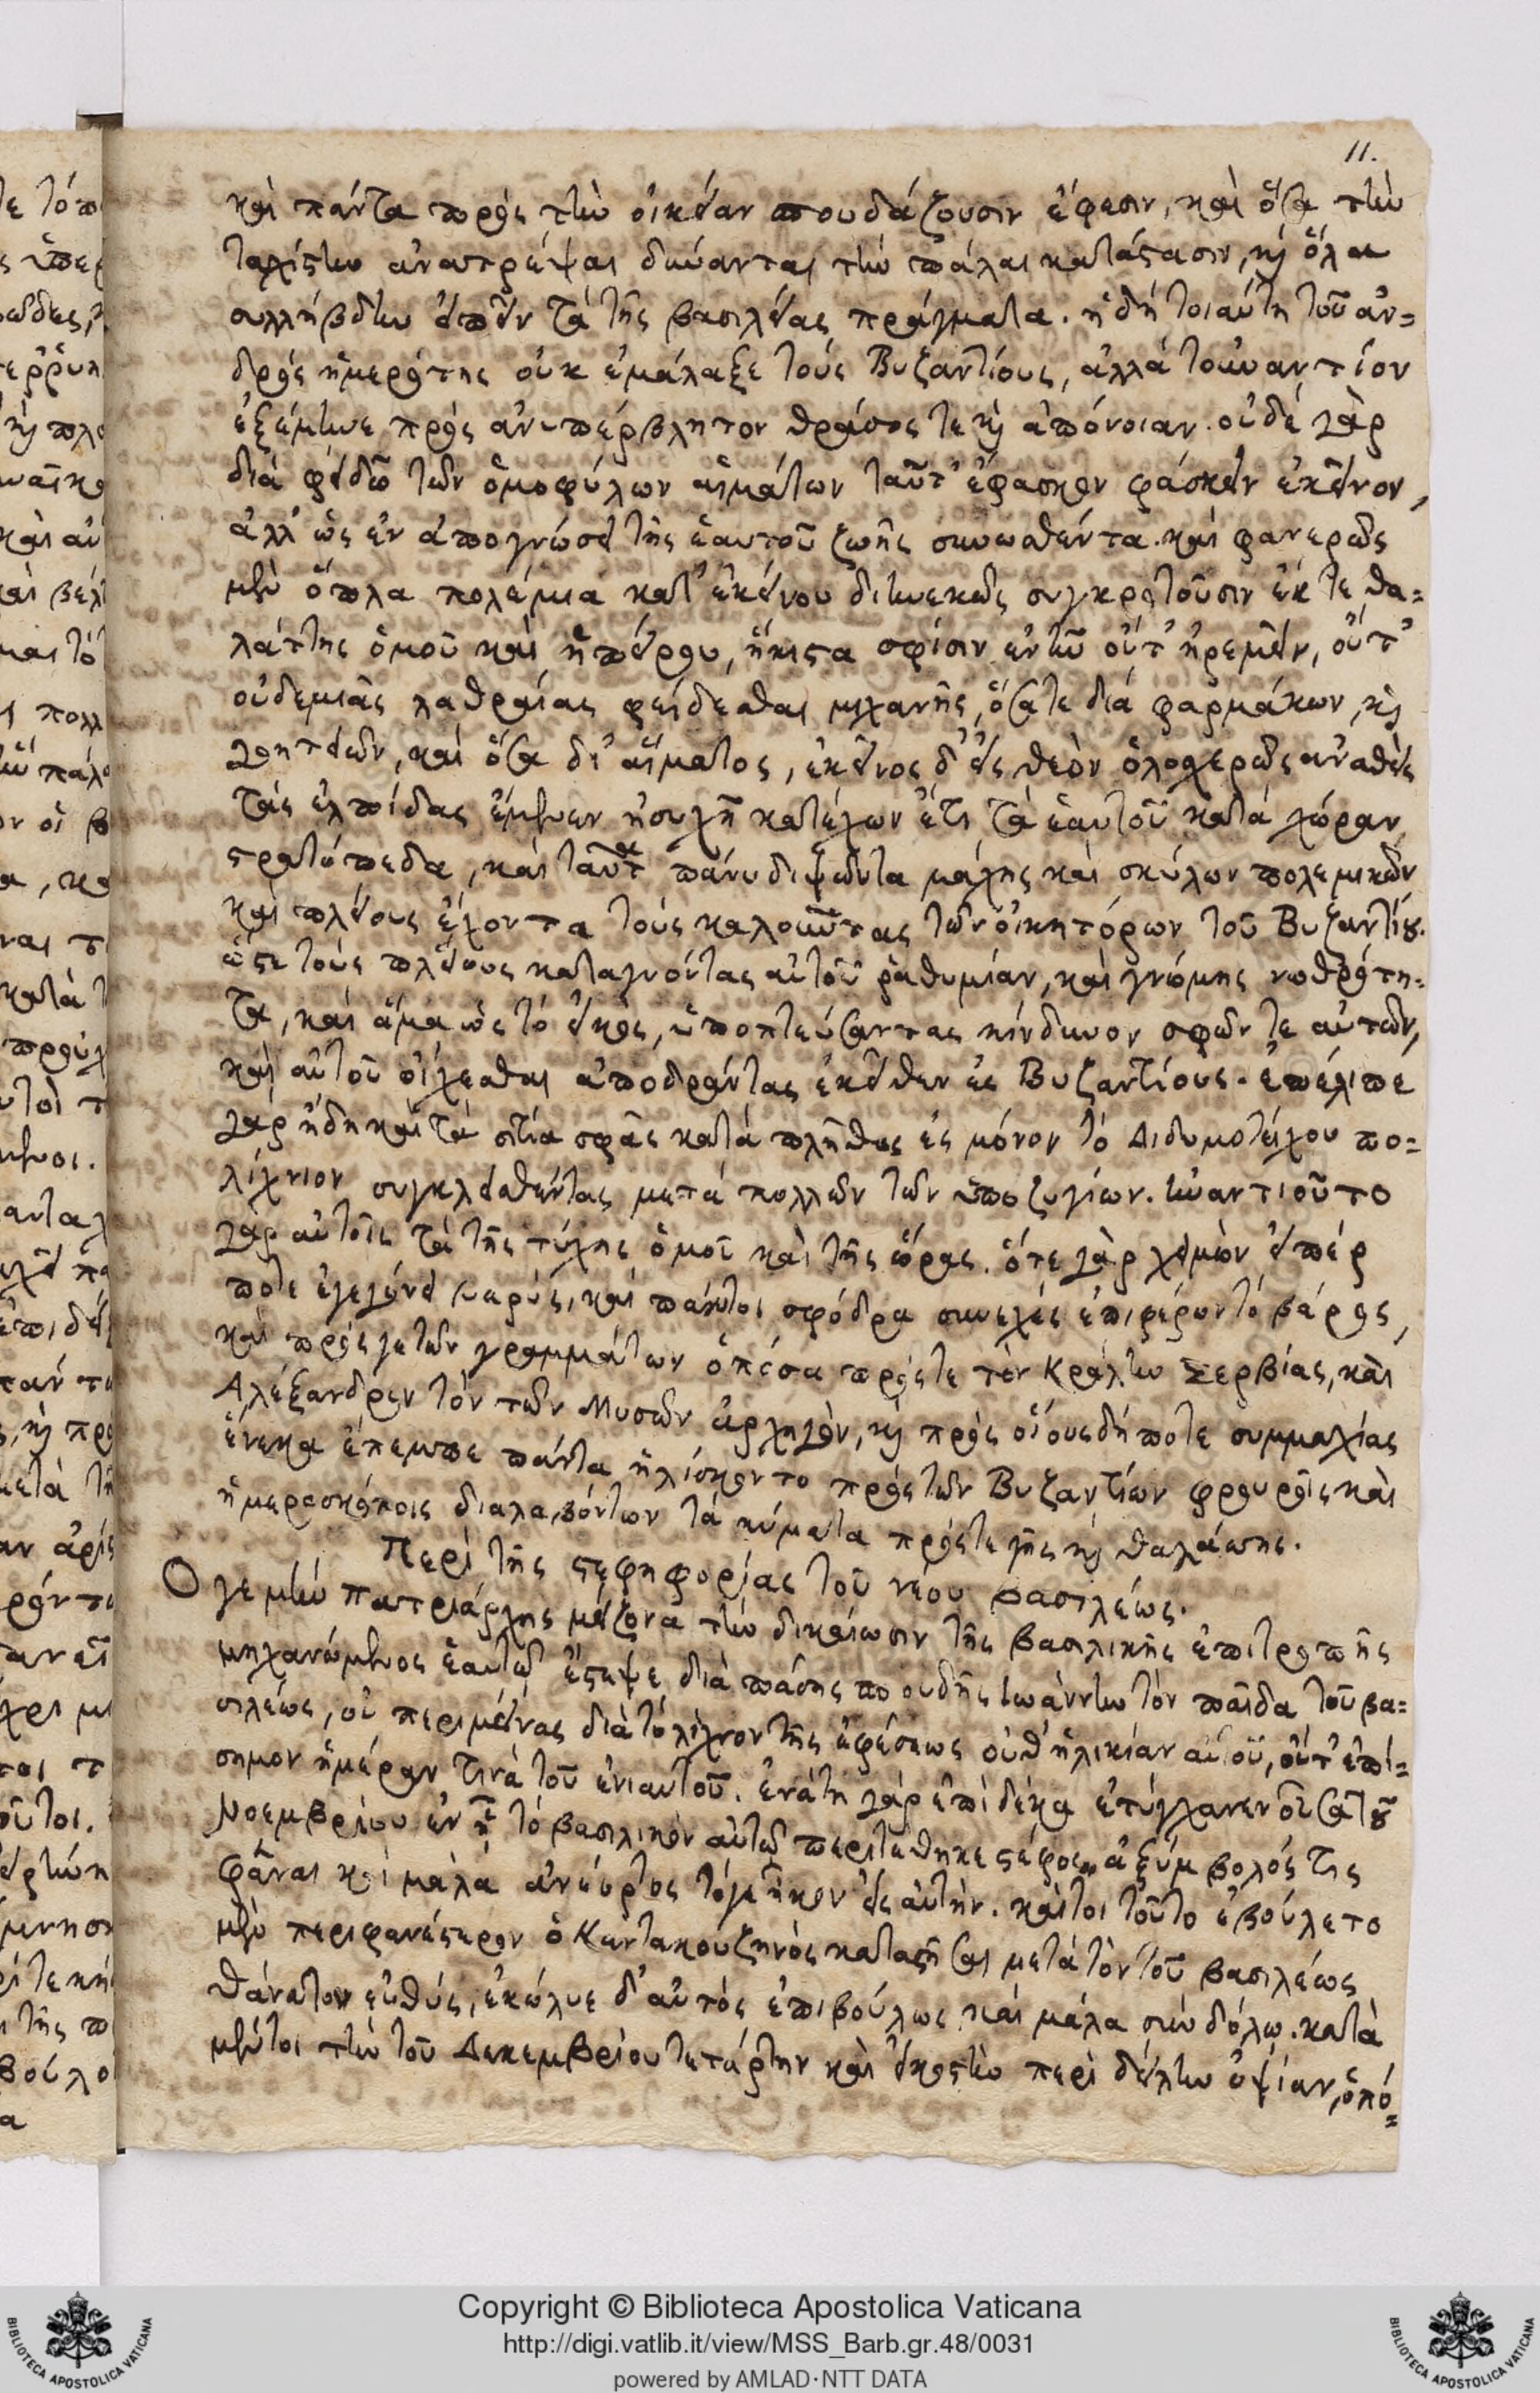 11.
καὶ πάντα πρὸς τὴν οἰκείαν σπουδάζουσιν ἔφεσιν, καὶ ὅσα τὴν
ταχίστην ἀνατρέψαι δύνανται τὴν πάλαι κατάστασιν, κỳ ὅλα
συλλήβδην εἰπεῖν τὰ τῆς βασιλείας πράγματα. ἡ δὴ τοιαύτη τοῦ ἀν=
δρὸς ἡμερότης οὐκ ἐμάλαξε τοὺς Βυζαντίους, ἀλλὰ τοὐναντίον
ἐξέμηνε πρὸς ἀνυπέρβλητον θράσος τε κỳ ἀπόνοιαν. οὐδὲ γὰρ
διὰ φειδὼ τῶν ὁμοφύλων αἱμάτων ταῦτ' ἔφασκον φάσκειν ἐκεῖνον,
ἀλλ' ὡς ἐν ἀπογνώσει τῆς ἑαυτοῦ ζωῆς συνωσθέντα. καὶ φανερῶς
μὲν ὅπλα πολέμια κατ' ἐκείνου διηνεκῶς συγκροτοῦσιν ἔκ τε θα=
λάττης ὁμοῦ καὶ ἠπείρου, ἥκιστα σφίσιν ἐνῆν οὔτ' ἠρεμεῖν, οὔτ'
οὐδεμιᾶς λαθραίας φείδεσθαι μηχανῆς, ὅσα τε διὰ φαρμάκων, κỳ
γοητειῶν, καὶ ὅσα δι' αἵματος, ἐκεῖνος δ' εἰς θεὸν ὁλοσχερῶς ἀναθεὶς
τὰς ἐλπίδας ἔμενεν ἡσυχῇ κατέχων ἔτι τὰ ἑαυτοῦ κατὰ χώραν
στρατόπεδα, καὶ ταῦτα πάνυ διψῶντα μάχης καὶ σκύλων πολεμικῶν
καὶ πλείους ἔχοντα τοὺς καλοῦντας τῶν οἰκητόρων τοῦ Βυζαντίου.
ὥστε τοὺς πλείους καταγνόντας αὐτοῦ ῥαθυμίαν, καὶ γνώμης νωθρότη=
τα, καὶ ἅμα ὡς τὸ εἰκὸς, ὑποπτεύσαντας κίνδυνον σφῶν τε αὐτῶν,
καὶ αὐτοῦ οἴχεσθαι ἀποδράντας ἐκεῖθεν ἐς Βυζαντίους. ἐπέλιπε
γὰρ ἤδη καὶ τὰ σιτία σφᾶς κατὰ πλῆθος ἐς μόνον τὸ Διδυμοτείχου πο=
λίχνιον συγκλεισθέντας μετὰ πολλῶν τῶν ὑποζυγίων. ἠναντιοῦτο
γὰρ αὐτοῖς τὰ τῆς τύχης ὁμοῦ καὶ τῆς ὥρας. ὅτε γὰρ χειμὼν εἴπερ
ποτε ἐγεγόνει βαρὺς, καὶ παγετοὶ σφόδρα συνεχὲς ἐπιφέροντο βάρος,
καὶ πρός γε τῶν γραμμάτων ὁπόσα πρός τε τὸν Κράλην Σερβίας, καὶ
Ἀλέξανδρον τὸν τῶν Μυσῶν ἀρχηγὸν, κỳ πρὸς οἵους δήποτε συμμαχίας
ἕνεκα ἔπεμπε πάντα ἡλίσκοντο πρὸς τῶν Βυζαντίων φρουροῖς καὶ
ἡμεροσκόποις διαλαβόντων τὰ κύματα πρός τε γῆς κỳ θαλάσσης.
Περὶ τῆς στεφηφορίας τοῦ νέου βασιλέως.
Ὅ γε μὴν πατριάρχης μείζονα τὴν δικαίωσιν τῆς βασιλικῆς ἐπιτροπῆς
μηχανώμενος ἑαυτῷ ἔστεψε διὰ πάσης σπουδῆς Ἰωάννην τὸν παῖδα τοῦ βα=
σιλέως, οὐ περιμείνας διὰ τὸ λίχνον τῆς ἐφέσεως οὔθ' ἡλικίαν αὐτοῦ, οὔτ' ἐπί=
σημον ἡμέραν τινὰ τοῦ ἐνιαυτοῦ. ἐνάτη γὰρ ἐπὶ δέκα ἐτύγχανεν οὖσα τοῦ
Νοεμβρίου ἐν ᾗ τὸ βασιλικὸν αὐτῷ περιτέθηκε στέφος, ἀξύμβολός τις
φᾶναι καὶ μάλα ἀνέορτος τό γε ἧκον εἰς αὐτήν. καίτοι τοῦτο ἐβούλετο
μὲν περιφανέστερον ὁ Καντακουζηνὸς καταστῆσαι μετὰ τὸν τοῦ βασιλέως
θάνατον εὐθὺς, ἐκώλυε δ' αὐτὸς ἐπιβούλως καὶ μάλα σὺν δόλῳ. κατὰ
μέντοι τὴν τοῦ Δεκεμβρίου τετάρτην καὶ εἰκοστὴν περὶ δείλην ὀψίαν, ὁπό=
Copyright © Biblioteca Apostolica Vaticana
http://digi.vatlib.it/view/MSS_Barb.gr.48/0031
powered by AMLAD·NTT DATA
BIBLIOTECA APOSTOLICA VATICANA
BIBLIOTECA APOSTOLICA VATICANA